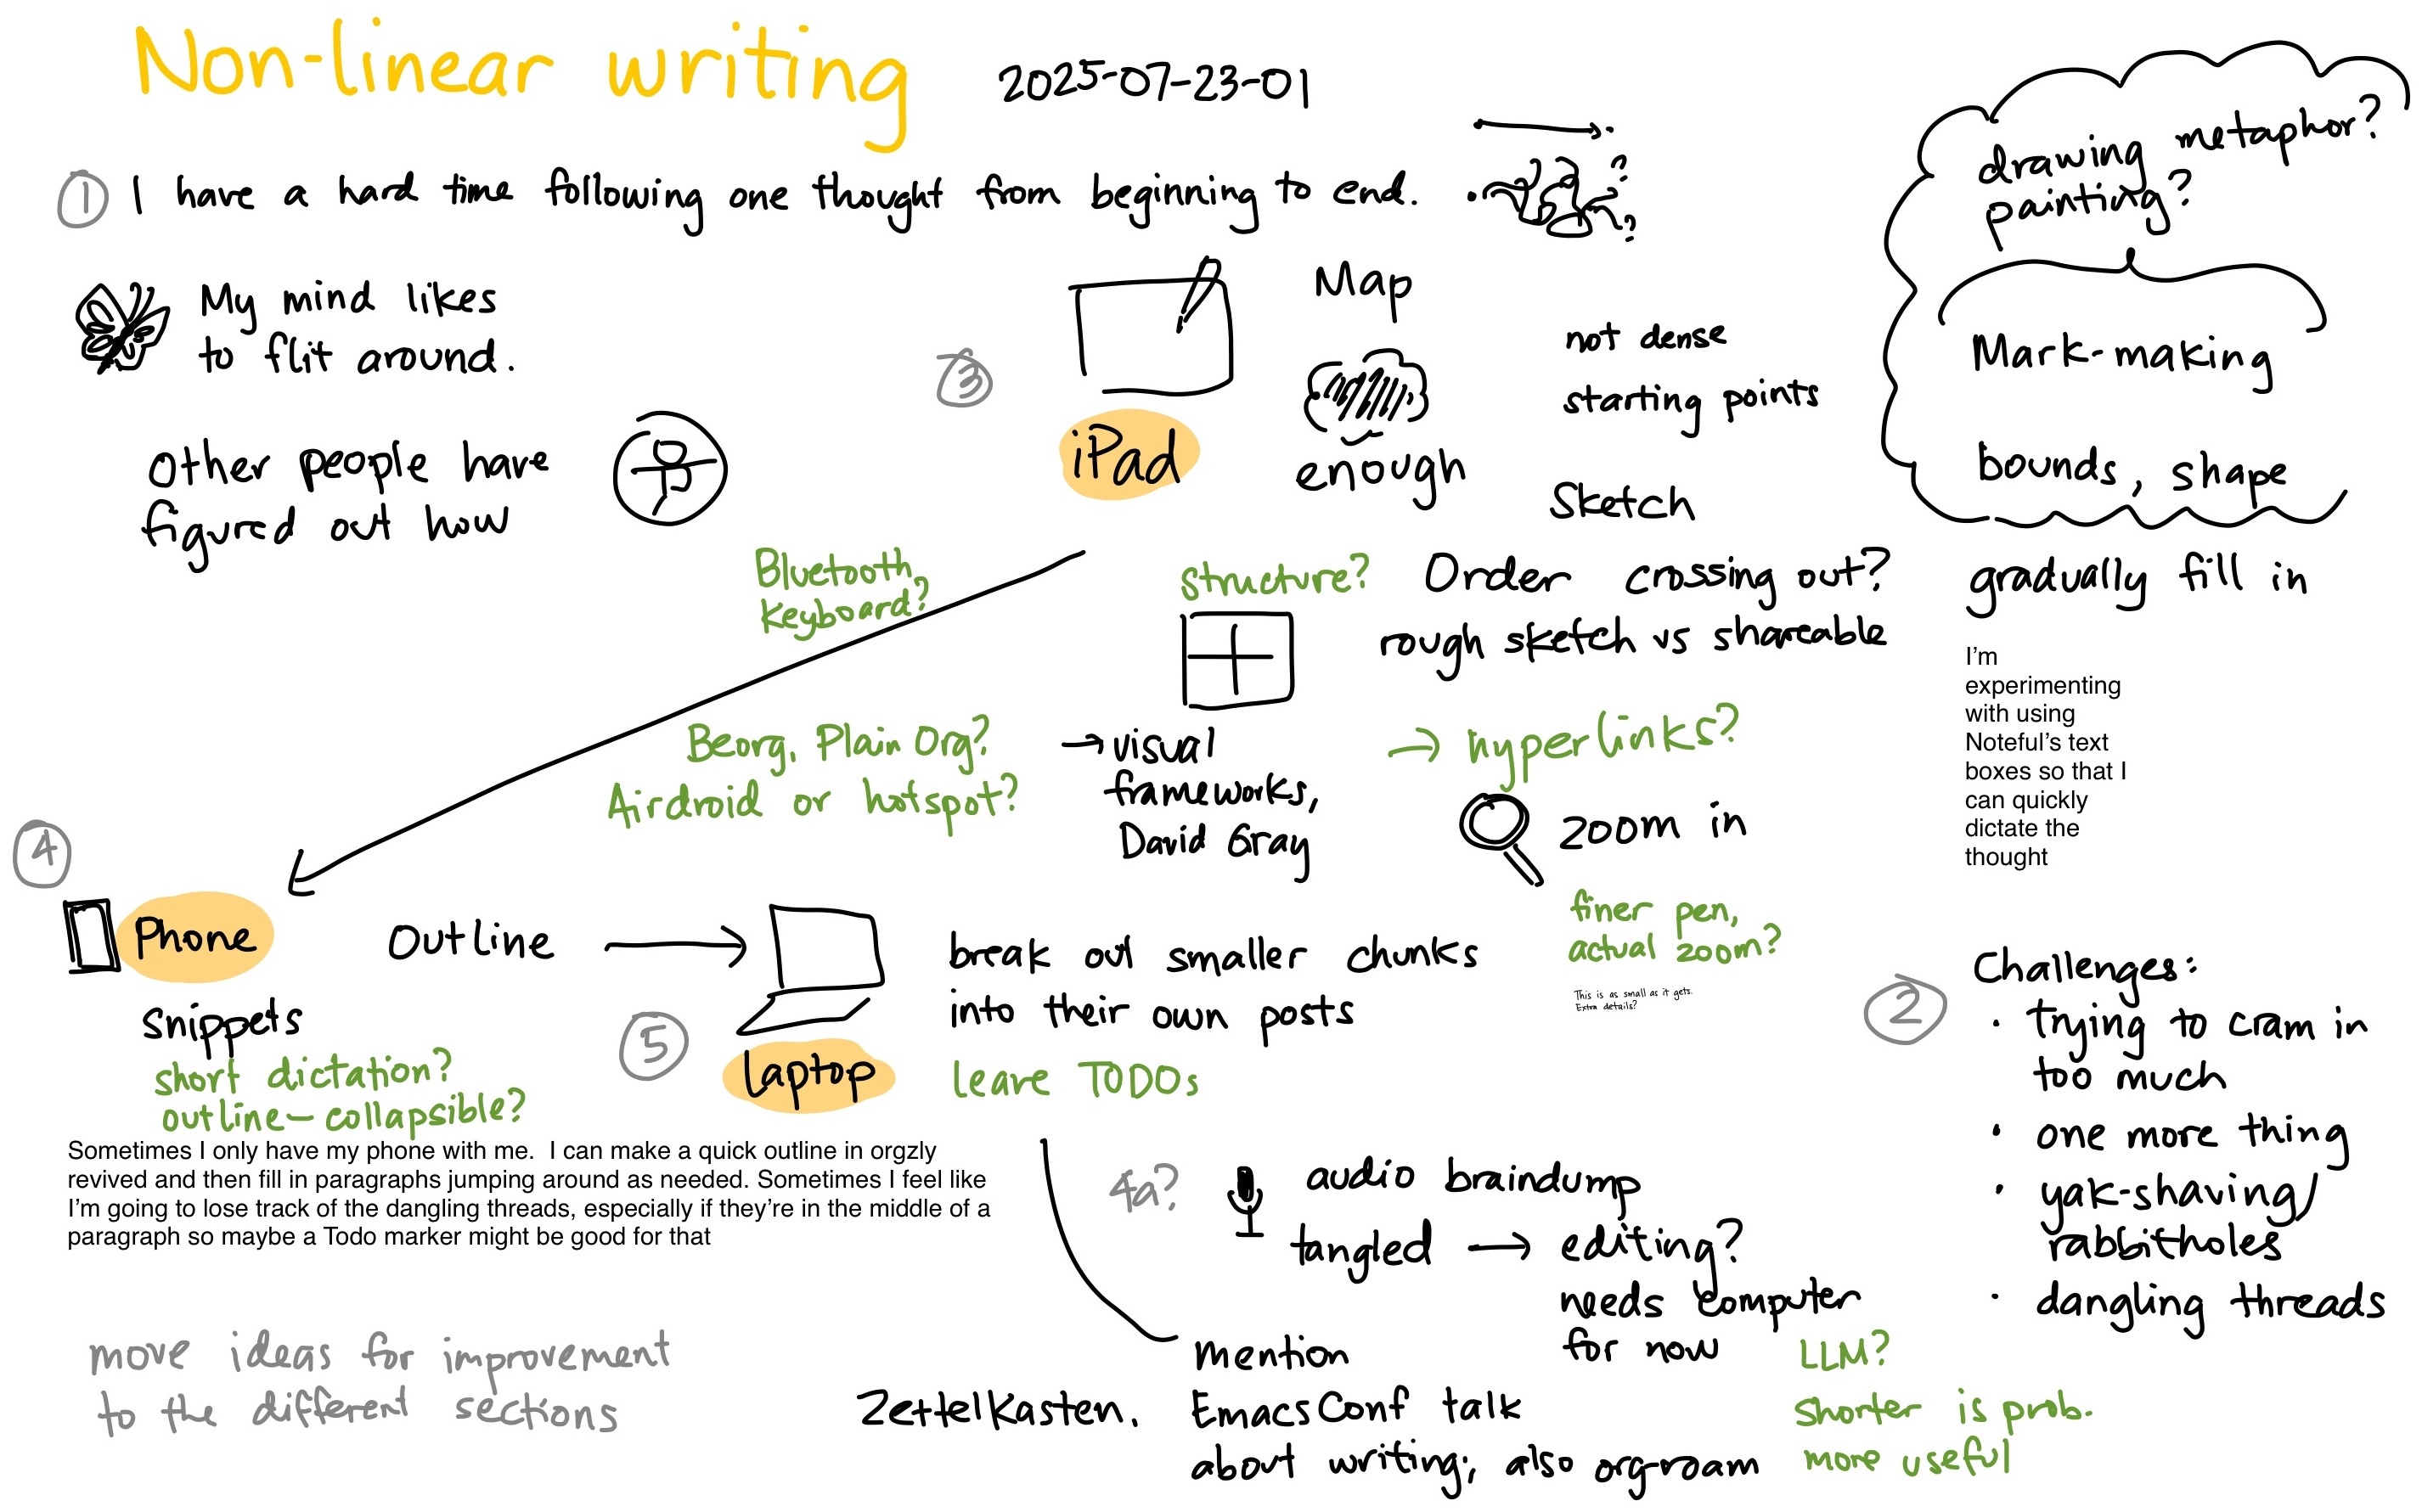 Non-linear writing
2025-07-23-01
① I have a hard time following one thought from beginning to end.
?
?
My mind likes
to flit around.
Other people have
figured out how
③
iPad
Map
enough
not dense
starting points
Sketch
drawing metaphor?
painting?
Mark-making
bounds, shape
gradually fill in
I'm
experimenting
with using
Noteful's text
boxes so that I
can quickly
dictate the
thought
Bluetooth
keyboard?
structure?
Order crossing out?
rough sketch vs shareable
Beorg, Plain Org?
Airdroid or hotspot?
→ visual
frameworks,
David Gray
→ hyperlinks?
zoom in
finer pen,
actual zoom?
This is as small as it gets.
Extra details?
④
Phone
Outline
Snippets
short dictation?
outline – collapsible?
Sometimes I only have my phone with me.  I can make a quick outline in orgzly
revived and then fill in paragraphs jumping around as needed. Sometimes I feel like
I'm going to lose track of the dangling threads, especially if they're in the middle of a
paragraph so maybe a Todo marker might be good for that
⑤
laptop
break out smaller chunks
into their own posts
leave TODOs
② Challenges:
• trying to cram in
too much
• one more thing
• yak-shaving/
rabbitholes
• dangling threads
4a?
audio braindump
tangled → editing?
needs computer
for now
LLM?
Shorter is prob.
more useful
mention
Zettelkasten. EmacsConf talk
about writing; also org-roam
move ideas for improvement
to the different sections